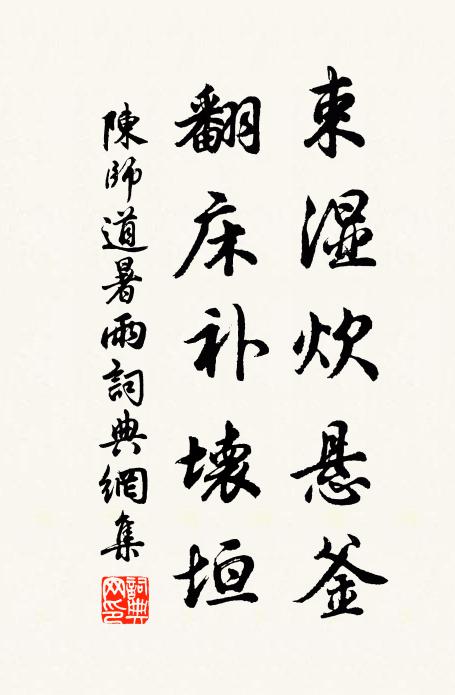 束湿炊悬釜
翻床补壞垣
陳師道暑雨詞典網集
詞典网印